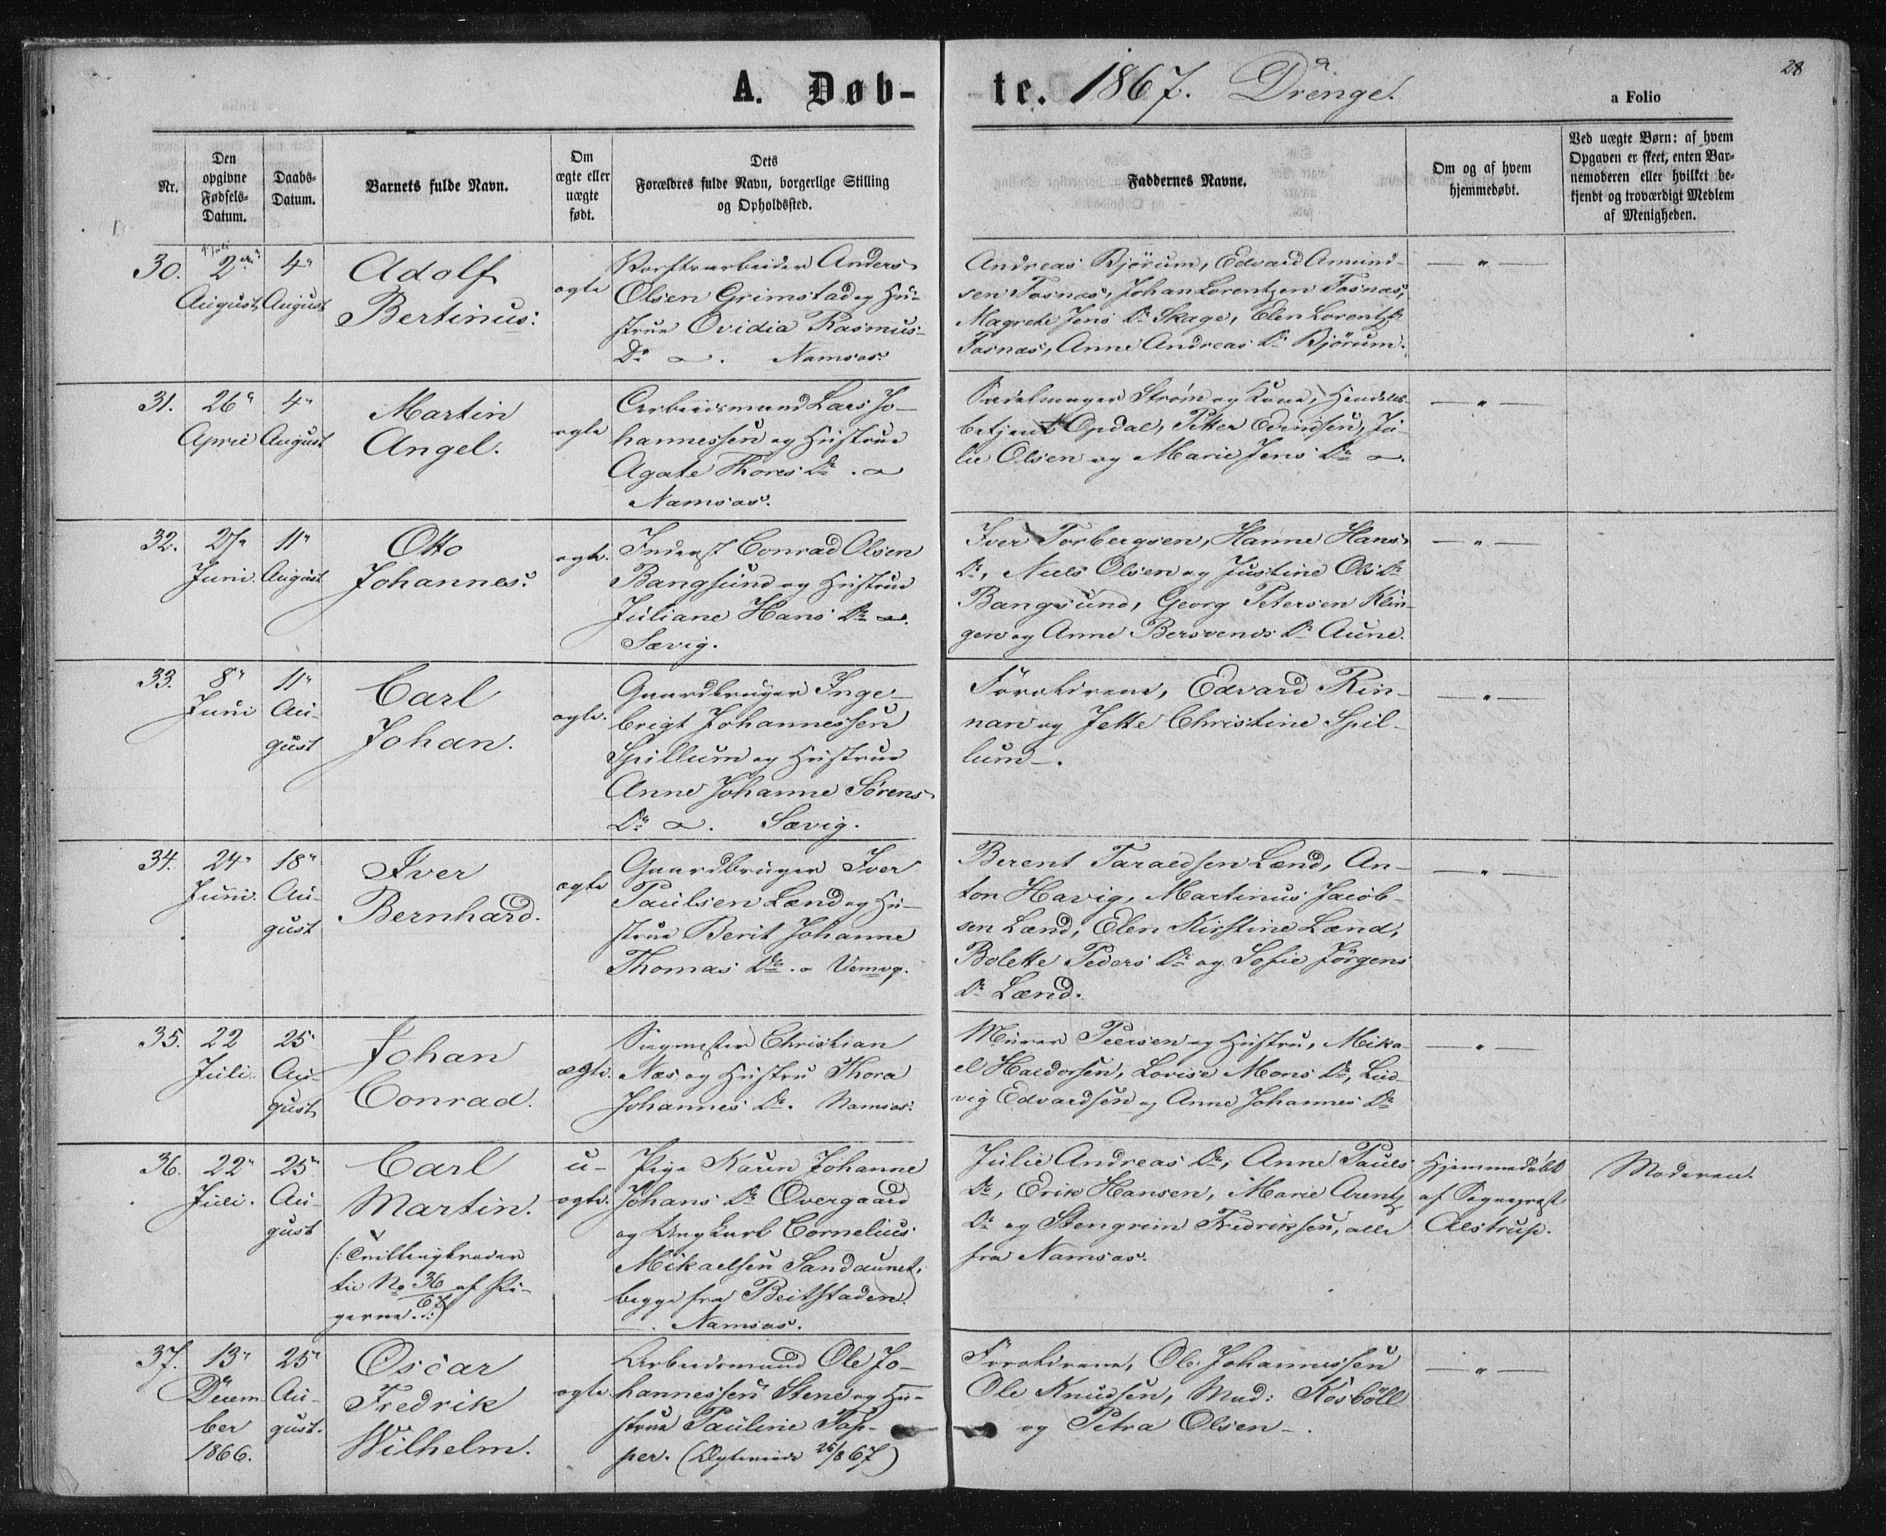 A. Døb-
te. 1867. Drenge.
28
a Folio
Nr.
Den opgivne Fødsels-Datum.
Daabs-Datum.
Barnets fulde Navn.
Om ægte eller uægte født.
Dets Forældres fulde Navn, borgerlige Stilling og Opholdssted.
Faddernes Navne.
Om og af hvem hjemmedøbt.
Ved uægte Børn: af hvem Opgaven er skeet, enten Barnemoderen eller hvilket bekjendt og troværdigt Medlem af Menigheden.
30.
2den
August
4"
August
Adolf
Bertinus.
ægte
Værftsarbeider Anders
Olsen Grimstad og Hu-
strue Ovidia Rasmus
Dr Namsos.
Andreas Bjørum, Edvard Amund-
sen Fosnæs, Johan Lorentzen Fosnæs,
Magrete Jens Dr Skage, Elen Lorentz Dr
Fosnæs, Anne Andreas Dr Bjørum.
— " —
31.
26"
April
4"
August
Martin
Angel.
ægte
Arbeidsmand Lars Jo-
hannessen og Hustrue
Agate Thores Dr.
Namsos.
Sadelmager Strøm og Kone, Handels-
betjent Opdal, Petter Evindsen, Ju-
lie Olsen og Marie Jens Dr
— " —
32.
27"
Juni
11"
August
Otto
Johannes.
ægte.
Inderst Conrad Olsen
Bangsund og Hustrue
Juliane Hans Dr
Sævig.
Iver Torbergsen, Hanne Hans
Dr, Niels Olsen og Justine Ols Dr
Bangsund, Georg Petersen Klin-
gen og Anne Bersvends Dr Aune.
— " —
33.
8"
Juni
11"
Au-
gust
Carl
Johan.
ægte.
Gaardbruger Inge-
brigt Johannessen
Spillum og Hustrue
Anne Johanne Sørens
Dr Sævig.
Forældrene, Edvard Rin-
nan og Jette Christine Spil-
lum.
— " —
34.
24"
Juni.
18"
Au-
gust
Iver
Bernhard.
ægte
Gaardbruger Iver
Paulsen Lænd og Hu-
strue Berit Johanne
Thomas Dr. Vemog.
Berent Taraldsen Lænd, An-
ton Havig, Martinus Jacob-
sen Lænd, Elen Kirstine Lænd,
Bolette Peders Dr og Sofie Jørgens
Dr Lænd.
— " —
35.
22
Juli.
25
Au-
gust
Johan
Conrad.
ægte.
Sagmester Christian
Næs og Hustru Thora
Johannes Dr. Namsos.
Murer Peersen og Hustru, Mika-
el Haldorsen, Lovise Mons Dr, Lud-
vig Edvardsen og Anne Johannes Dr
— " —
36.
22"
Juli.
25"
Au-
gust
Carl
Martin.
(: Tvillingbroder
til No 36 af Pi-
gerne :)
u-
ægte.
Pige Karen Johanne
Johans Dr Overgaard
og Ungkarl Cornelius
Mikaelsen Sandaunet,
begge fra Beitstaden.
Namsos.
Julie Andreas Dr, Anne Pauls
Dr, Erik Hansen, Marie Arentz
Dr og Stengrim Fredriksen, alle
fra Namsos.
Hjemmedøbt
af Sognepræst
Alstrup.
Moderen.
37.
13"
Decem
ber
1866.
25"
Au-
gust.
Oscar
Fredrik
Wilhelm.
ægte.
Arbeidsmand Ole Jo-
hannessen Stene og Hu-
strue Pauline Tap-
per. (Ægteviede 25/8 67)
Forældrene, Ole Johannessen
Ole Knudsen, Mad: Kosbøll
og Petra Olsen.
— " —